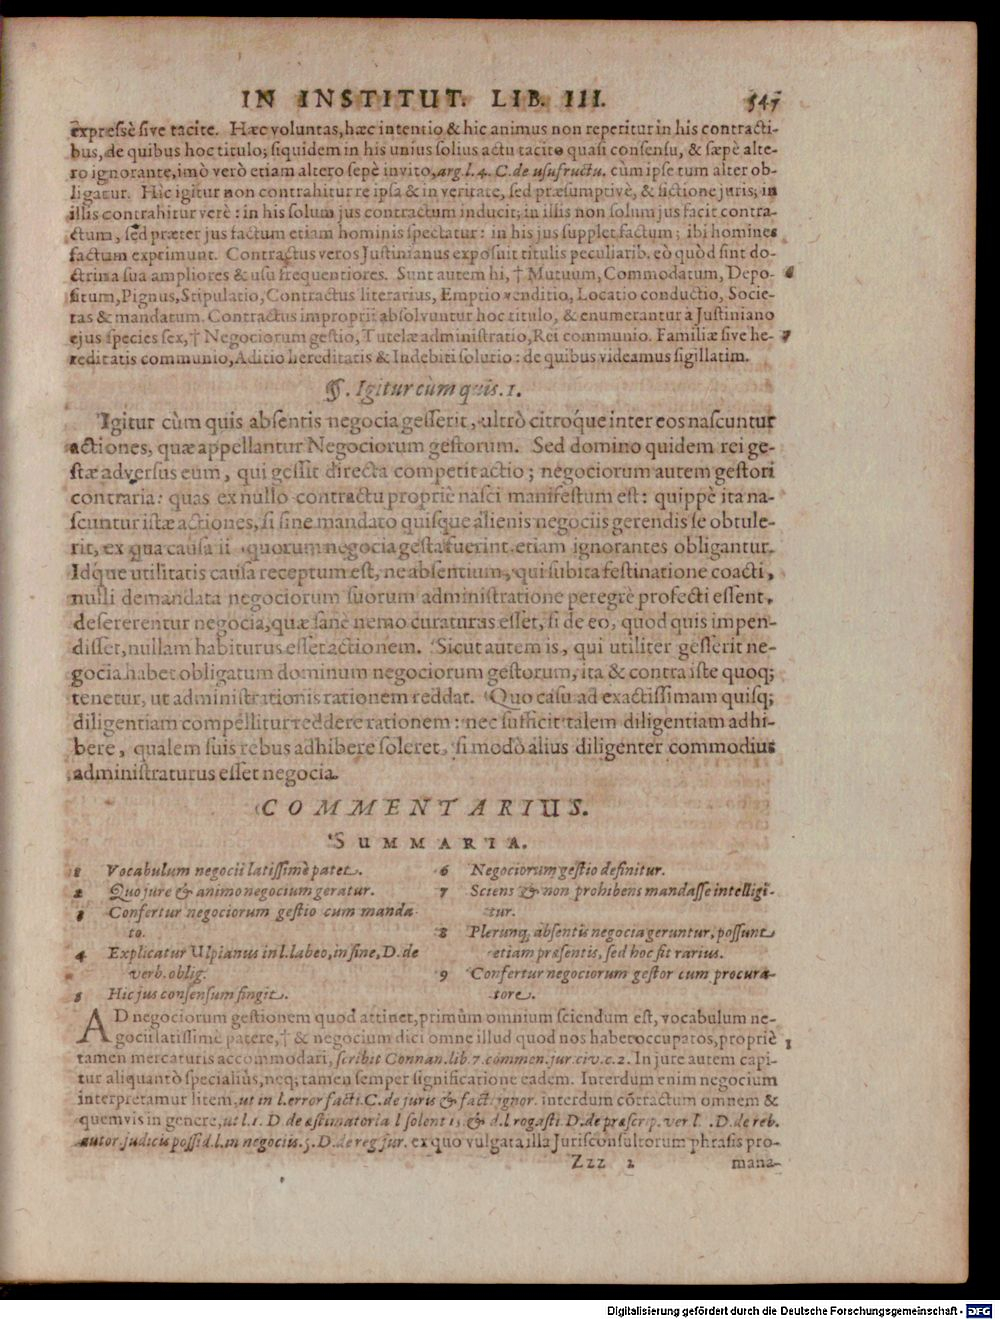 IN INSTITUT. LIB. III. 547
expressè sive tacite. Hæc voluntas, hæc intentio & hic animus non reperitur in his contracti-
bus, de quibus hoc titulo; siquidem in his unius solius actu tacito quasi consensu, & sæpè alte-
ro ignorante, imò verò etiam altero sepè invito, arg. l. 4. C. de usufructu. cùm ipse tum alter ob-
ligatur. Hic igitur non contrahitur re ipsa & in veritate, sed præsumptivè, & fictione juris; in
illis contrahitur verè: in his solum jus contractum inducit; in illis non solum jus facit contra-
ctum, sed præter jus factum etiam hominis spectatur: in his jus supplet factum; ibi homines
factum exprimunt. Contractus veros Justinianus exposuit titulis peculiarib. eò quòd sint do-
ctrina sua ampliores & usu frequentiores. Sunt autem hi, † Mutuum, Commodatum, Depo- 6
situm, Pignus, Stipulatio, Contractus literarius, Emptio venditio, Locatio conductio, Socie-
tas & mandatum. Contractus improprii absolvuntur hoc titulo, & enumerantur à Justiniano
ejus species sex, † Negociorum gestio, Tutelæ administratio, Rei communio. Familiæ sive he- 7
reditatis communio, Aditio hereditatis & Indebiti solutio: de quibus videamus sigillatim.
§. Igitur cùm quis. 1.
Igitur cùm quis absentis negocia gesserit, ultrò citroq́ue inter eos nascuntur
actiones, quæ appellantur Negociorum gestorum. Sed domino quidem rei ge-
stæ adversus eum, qui gessit directa competit actio; negociorum autem gestori
contraria: quas ex nullo contractu propriè nasci manifestum est: quippè ita na-
scuntur istæ actiones, si sine mandato quisque alienis negociis gerendis se obtule-
rit, ex qua causa ii quorum negocia gesta fuerint etiam ignorantes obligantur.
Idque utilitatis causa receptum est, ne absentium, qui subita festinatione coacti,
nulli demandata negociorum suorum administratione peregrè profecti essent,
desererentur negocia, quæ sanè nemo curaturus esset, si de eo, quod quis impen-
disset, nullam habiturus esset actionem. Sicut autem is, qui utiliter gesserit ne-
gocia habet obligatum dominum negociorum gestorum, ita & contra iste quoq;
tenetur, ut administrationis rationem reddat. Quo casu ad exactissimam quisq;
diligentiam compellitur reddere rationem: nec sufficit talem diligentiam adhi-
bere, qualem suis rebus adhibere soleret, si modò alius diligenter commodius
administraturus esset negocia.
COMMENTARIUS.
SUMMARIA.
1 Vocabulum negocii latissimè patet.
2 Quo jure & animo negocium geratur.
3 Confertur negociorum gestio cum manda-
to.
4 Explicatur Ulpianus in l. labeo, in fine, D. de
verb. oblig.
5 Hic jus consensum fingit.
6 Negociorum gestio definitur.
7 Sciens & non prohibens mandasse intelligi-
tur.
8 Plerunq; absentis negocia geruntur, possunt
etiam præsentis, sed hoc fit rarius.
9 Confertur negociorum gestor cum procura-
tore.
AD negociorum gestionem quod attinet, primùm omnium sciendum est, vocabulum ne-
gocii latissimè patere, † & negocium dici omne illud quod nos habet occupatos, propriè 1
tamen mercaturis accommodari, scribit Connan. lib. 7. commen. jur. civ. c. 2. In jure autem capi-
tur aliquantò specialiùs, neq; tamen semper significatione eadem. Interdum enim negocium
interpretamur litem, ut in l. error facti. C. de juris & fact. ignor. interdum cōtractum omnem &
quemvis in genere, ut l. 1. D. de æstimatoria l solent 15. & d. l rogasti D. de præscrip. ver l. . D. de reb.
autor. judicis possid. l. in negociis. 5. D. de reg jur. ex quo vulgata illa Jurisconsultorum phrasis pro-
Zzz 2 mana-
Digitalisierung gefördert durch die Deutsche Forschungsgemeinschaft - DFG